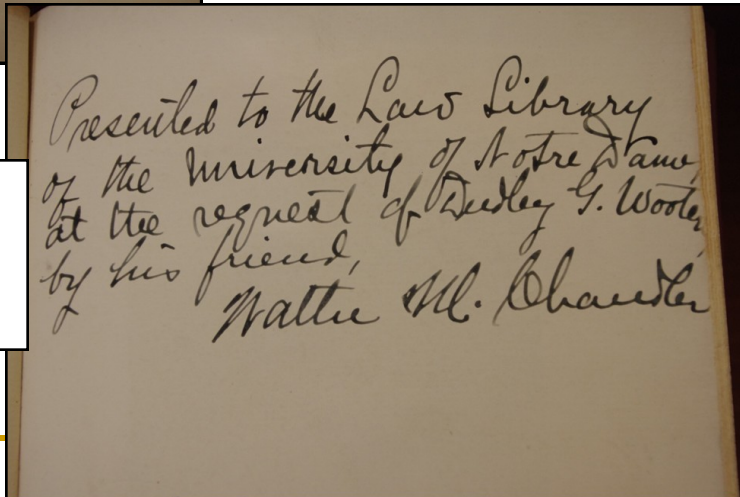 Presented to the Law Library
of the University of Notre Dame,
at the request of Dudley G. Wooten,
by his friend,
Walter M. Chandler